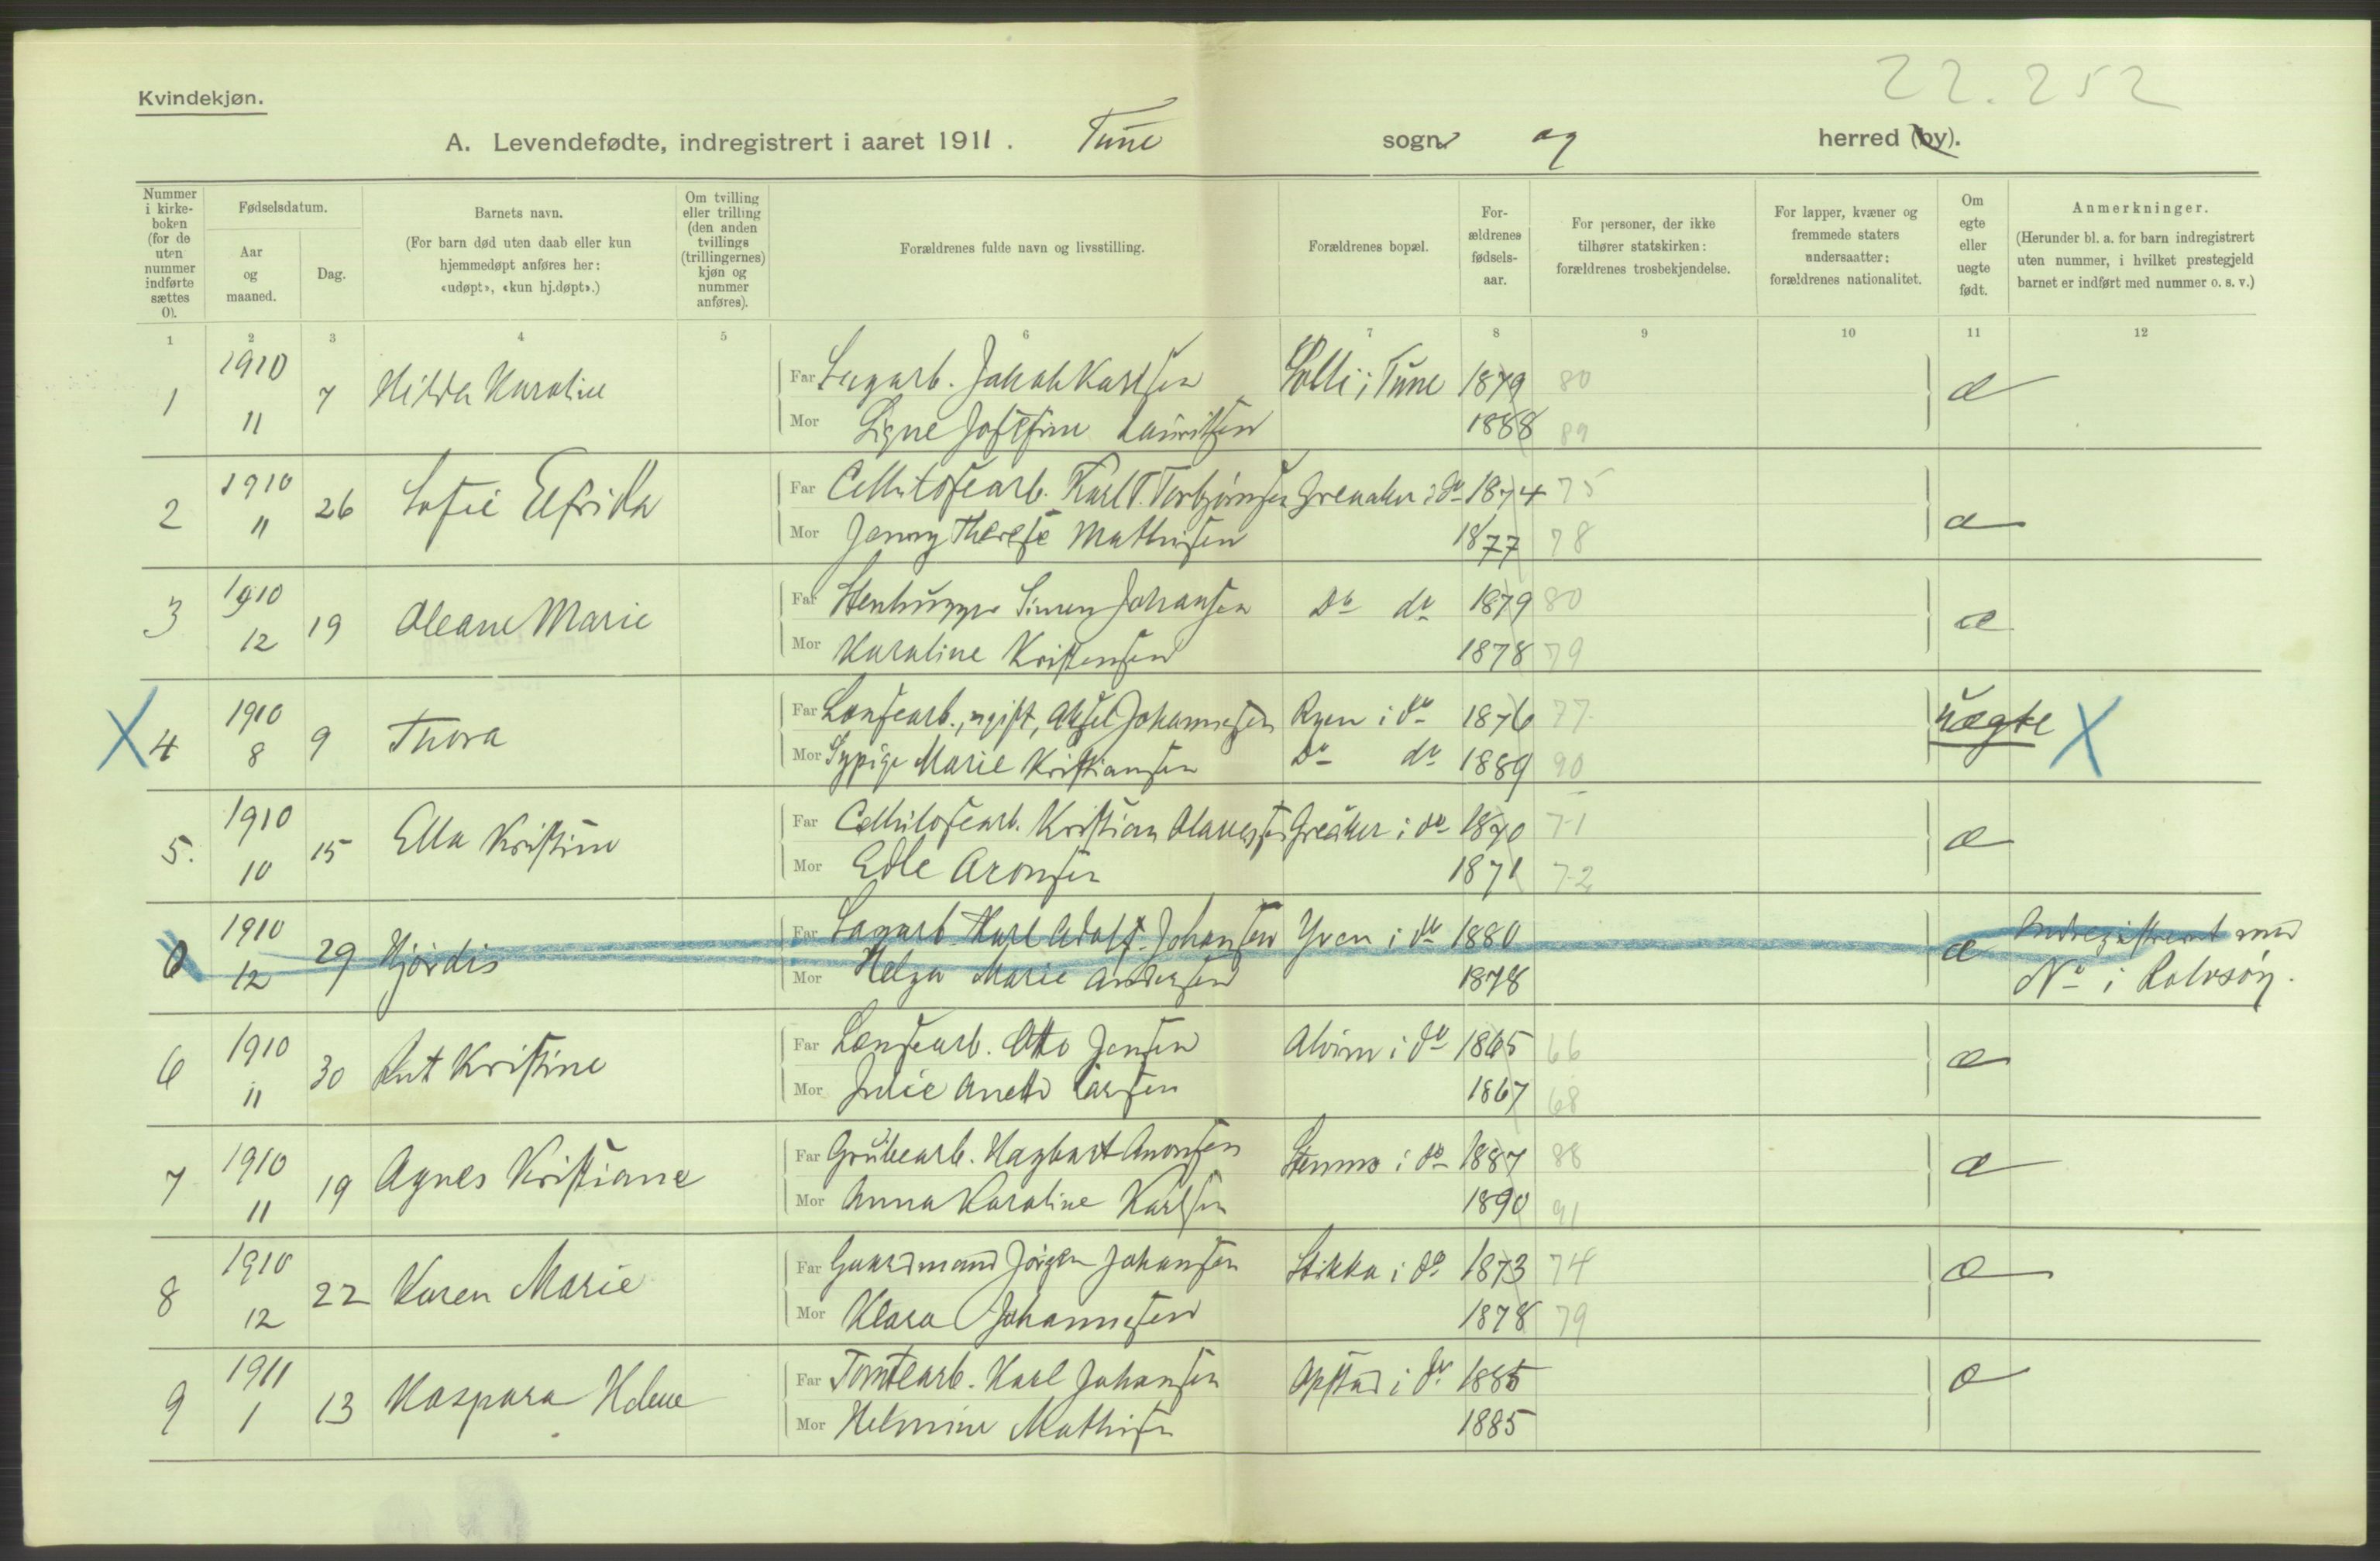 22.252
Kvindekjøn.
A. Levendefødte, indregistrert i aaret 1911. Tune sogn og herred (by).
Nummer i kirkeboken (for de uten nummer indførte sættes 0).
Fødselsdatum.
Aar og maaned.
Dag.
Barnets navn.
(For barn død uten daab eller kun hjemmedøpt anføres her: «udøpt», «kun hj.døpt».)
Om tvilling eller trilling (den anden tvillings (trillingernes) kjøn og nummer anføres).
Forældrenes fulde navn og livsstilling.
Forældrenes bopæl.
Forældrenes fødselsaar.
For personer, der ikke tilhører statskirken: forældrenes trosbekjendelse.
For lapper, kvæner og fremmede staters undersaatter: forældrenes nationalitet.
Om egte eller uegte født.
Anmerkninger.
(Herunder bl. a. for barn indregistrert uten nummer, i hvilket prestegjeld barnet er indført med nummer o. s. v.)
1 2 3 4 5 6 7 8 9 10 11 12
1 1910 11 7 Hilda Karoline Far Sagarb. Jakob Karlsen Solli i Tune 1879 80 æ
Mor Signe Josefine Lauritsen 1888 89
2 1910 11 26 Sofie Elfrida Far Cellulosearb. Karl T. Torbjørnsen Greaaker i do 1874 75 æ
Mor Jenny Therese Mathisen 1877 78
3 1910 12 19 Oleane Marie Far Stenhugger Simen Johansen Do do 1879 80 æ
Mor Karoline Kristensen 1878 79
X 4 1910 8 9 Thora Far Lensearb., ugift, Aksel Johannesen Ryen i do 1876 77 uægte X
Mor Sypige Marie Kristiansen Do do 1889 90
5. 1910 10 15 Ella Kristine Far Cellulosearb. Kristian Olavessen Greaker i do 1870 71 æ
Mor Edle Aronsen 1871 72
0 1910 12 29 Hjørdis Far Sagarb. Karl Adolf Johansen Yven i do 1880 æ Indregistreret med
Mor Helga Marie Andersen 1878 No i Rolvsøy.
6 1910 11 30 Rut Kristine Far Lensearb. Otto Jensen Alvim i do 1865 66 æ
Mor Julie Anette Larsen 1867 68
7 1910 11 19 Agnes Kristiane Far Grubearb. Hagbart Aronsen i do 1887 88 æ
Mor Anna Karoline Karlsen 1890 91
8 1910 12 22 Karen Marie Far Gaardmand Jørgen Johansen Stikka i do 1873 74 æ
Mor Klara Johannesen 1878 79
9 1911 1 13 Kaspara Helene Far Tomtearb. Karl Johansen Opstad i do 1885 æ
Mor Helmine Mathisen 1885